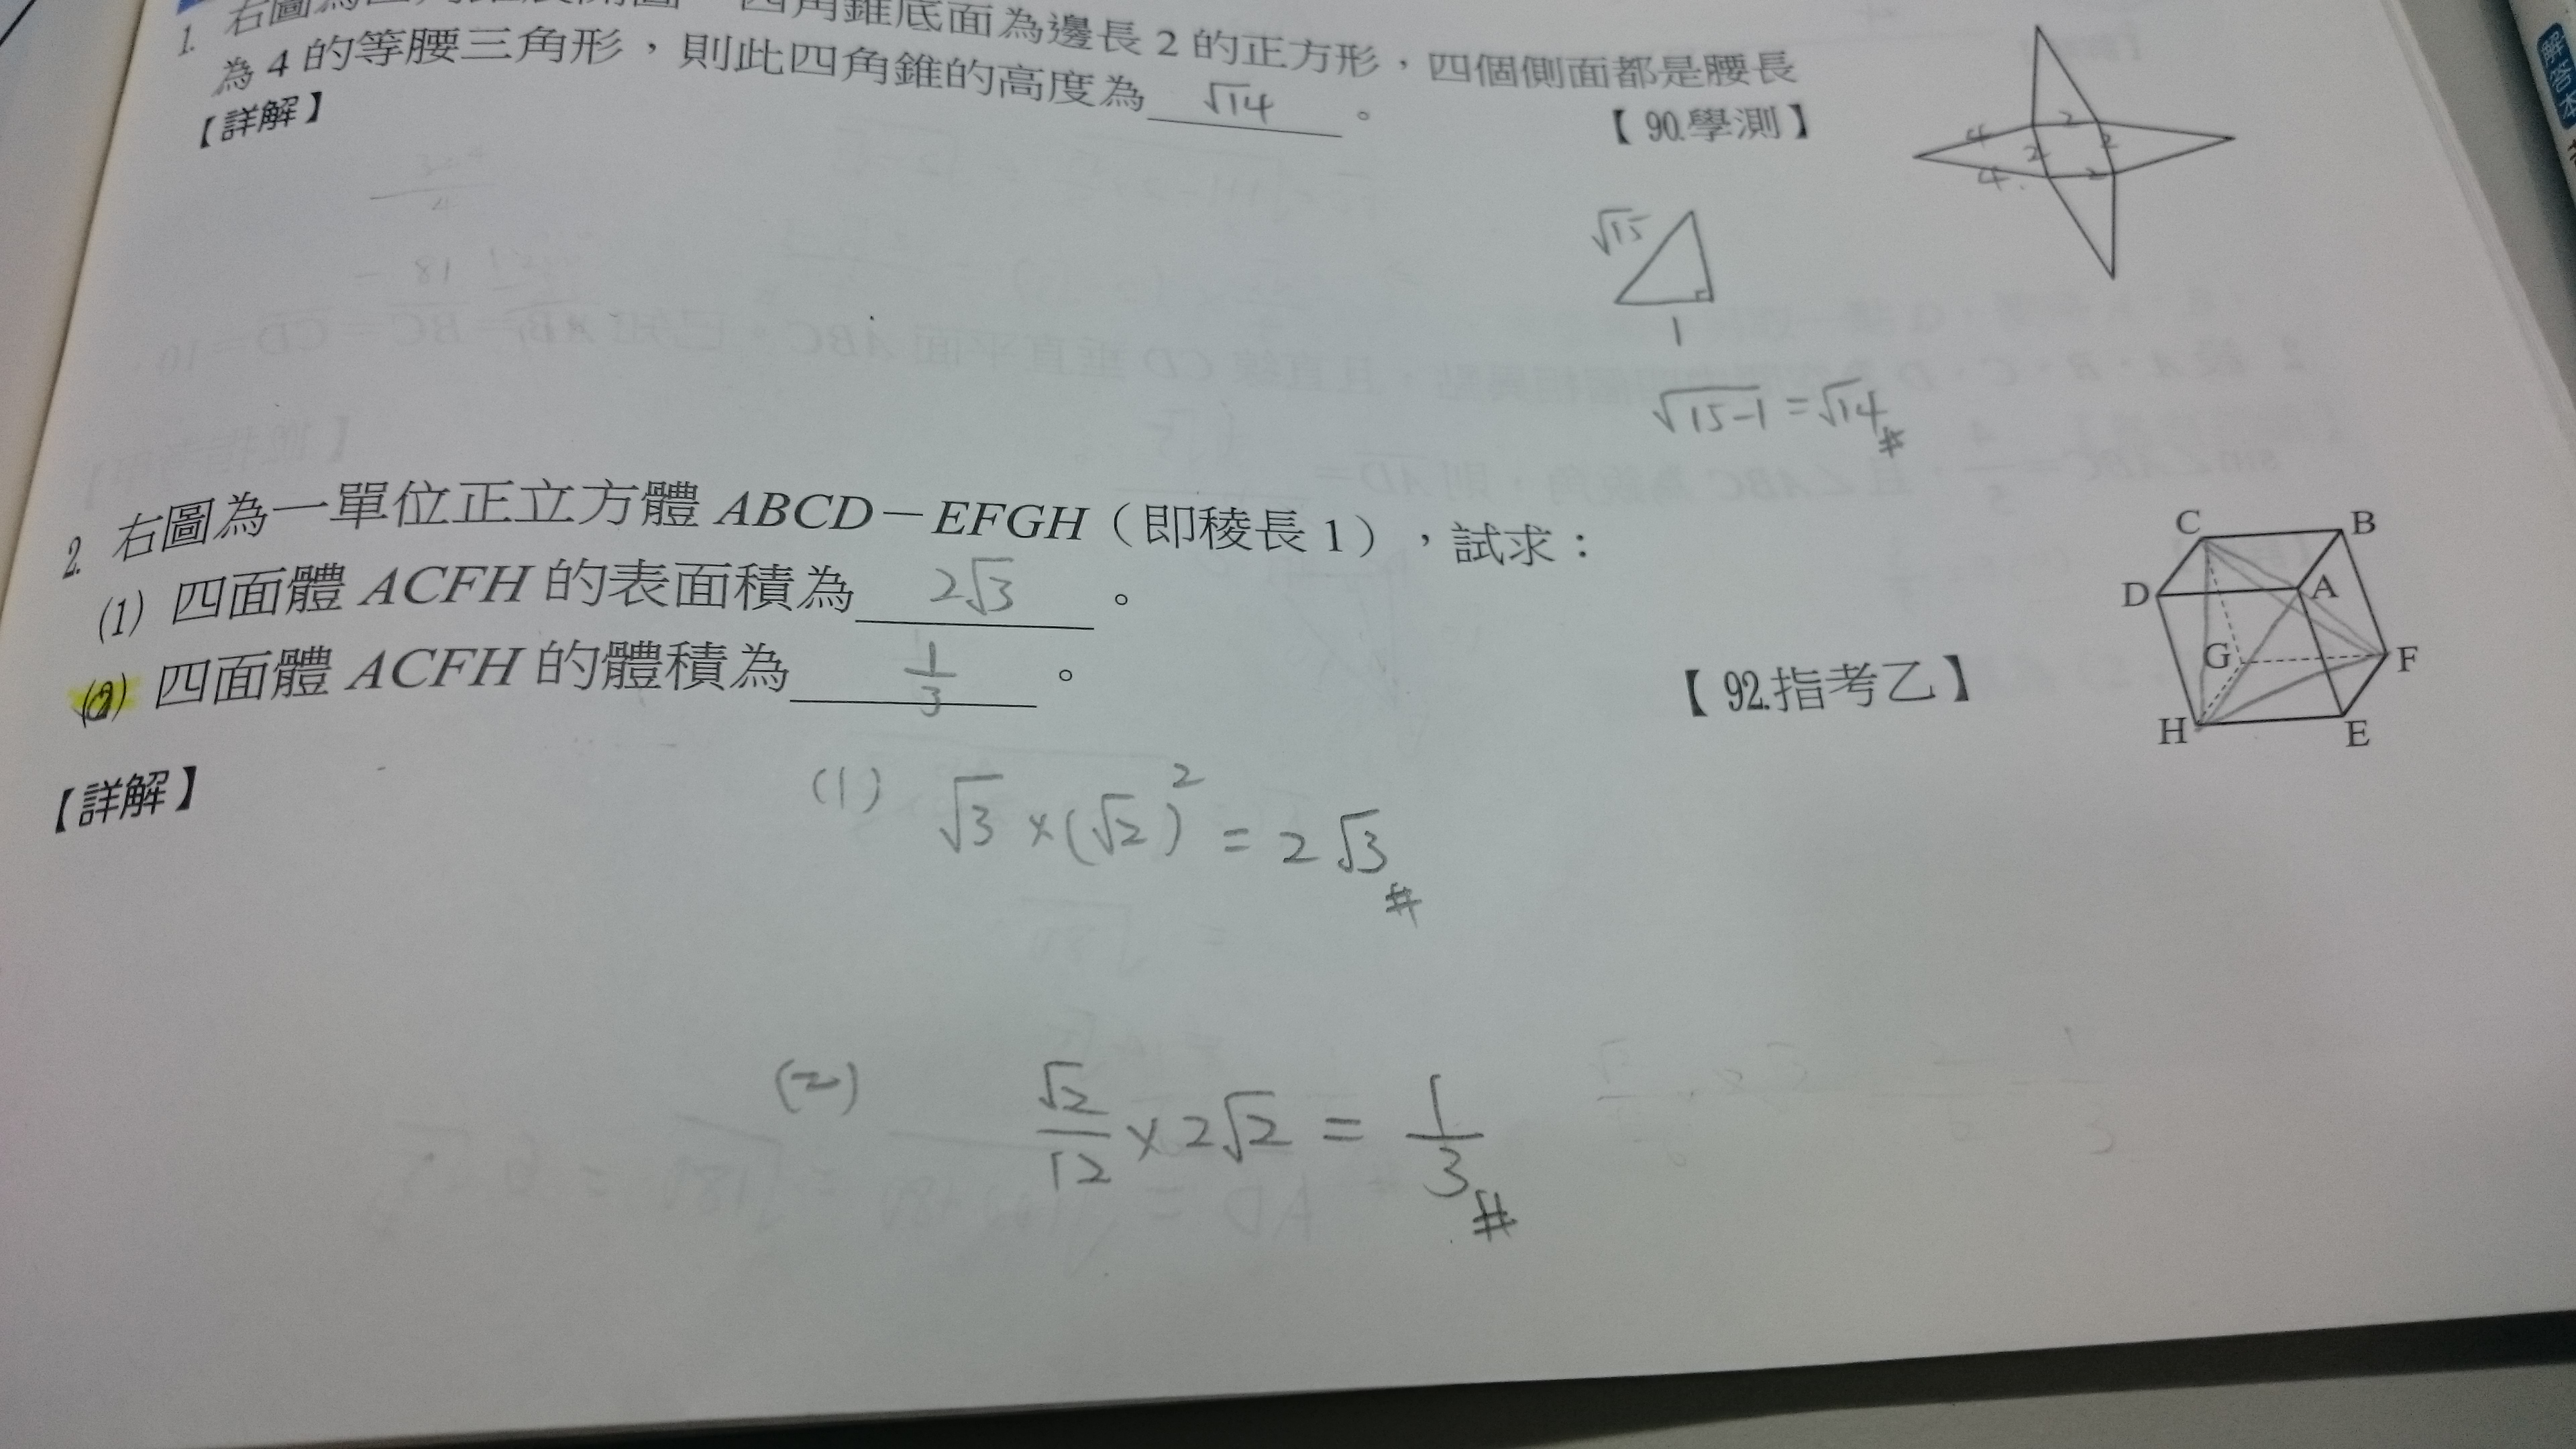 1. 右圖為四角錐展開圖，四角錐底面為邊長 2 的正方形，四個側面都是腰長
為 4 的等腰三角形，則此四角錐的高度為 √14 。
【90.學測】
【詳解】
4
4
2
2
2
2
√15
1
√15-1 = √14 #
2. 右圖為一單位正立方體 ABCD－EFGH（即稜長 1），試求：
(1) 四面體 ACFH 的表面積為 2√3 。
(2) 四面體 ACFH 的體積為 1/3 。
【92.指考乙】
C
B
D
A
G
F
H
E
【詳解】
(1) √3 × (√2)² = 2√3 #
(2) √2/12 × 2√2 = 1/3 #
解答本